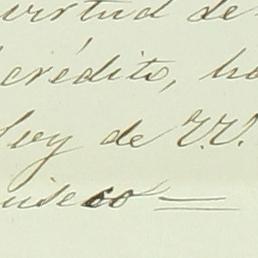 virtud de
crédito, ho
Soy de V.V.
uiseco =